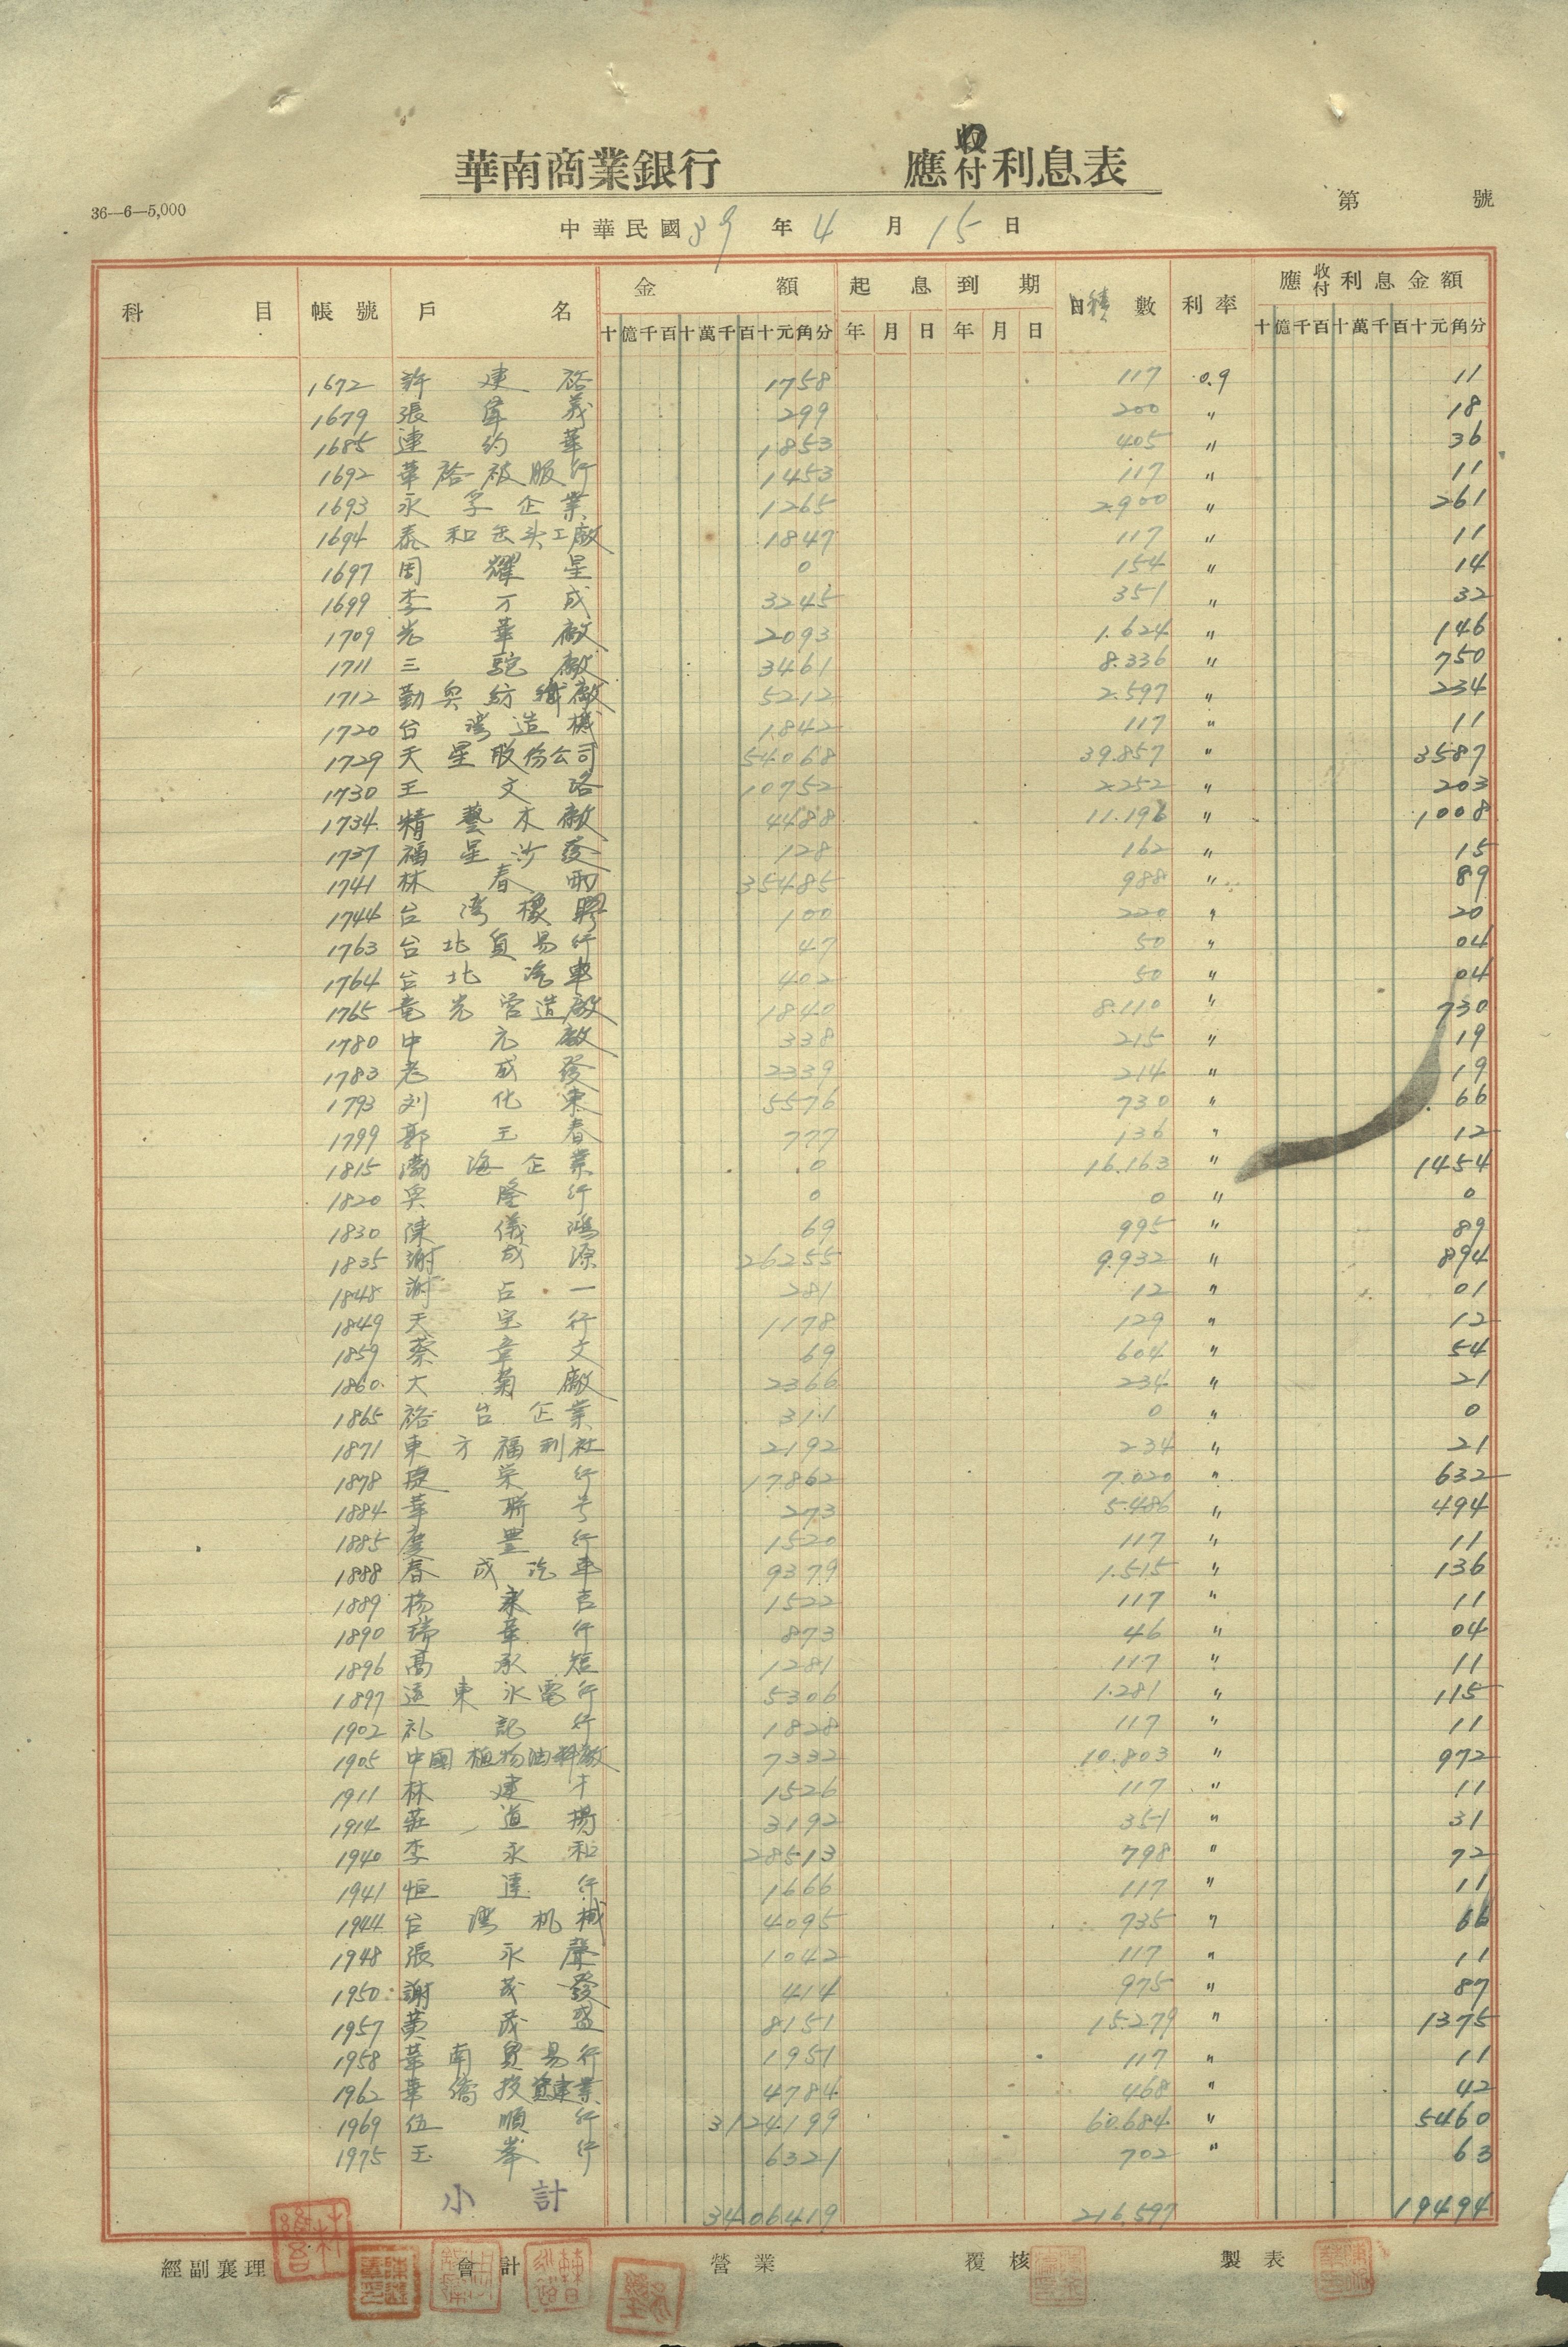 華南商業銀行 應收付利息表
36—6—5,000
第 號
中華民國39年4月15日
科目 帳號 戶名 金額 起息 到期 日積數 利率 應收付利息金額
十億千百十萬千百十元角分 年 月 日 年 月 日 十億千百十萬千百十元角分
1672 許建裕 1758 117 0.9 11
1679 張華義 299 200 〃 18
1685 連約華 1853 405 〃 36
1692 華裕被服行 1453 117 〃 11
1693 永孚企業 1265 2.900 〃 261
1694 泰和缶头工廠 1847 117 〃 11
1697 周耀星 0 154 〃 14
1699 李万成 3245 351 〃 32
1709 光華廠 2093 1.624 〃 146
1711 三駝廠 3461 8.336 〃 750
1712 勤奥紡織廠 5212 2.597 〃 234
1720 台湾造機 1842 117 〃 11
1729 天星股份公司 54068 39.857 〃 3587
1730 王文 10752 2.252 〃 203
1734 精藝木廠 4488 11.196 〃 1008
1737 福星沙發 128 162 〃 15
1741 林春雨 35485 988 〃 89
1744 台湾橡膠 100 220 〃 20
1763 台北貿易行 47 50 〃 04
1764 台北汽車 402 50 〃 04
1765 竜光营造廠 1840 8.110 〃 730
1780 中元廠 338 215 〃 19
1783 老成發 2339 214 〃 19
1793 刘化東 5576 730 〃 66
1799 郭玉春 777 136 〃 12
1815 渤海企業 0 16.163 〃 1454
1820 奥隆行 0 0 〃 0
1830 陳儀鴻 69 995 〃 89
1835 謝成源 26255 9.932 〃 894
1848 謝占一 281 12 〃 01
1849 天宝行 1178 129 〃 12
1859 蔡章文 69 604 〃 54
1860 大菊廠 2366 234 〃 21
1865 裕台企業 311 0 〃 0
1871 東方福利社 2192 234 〃 21
1878 捷荣行 17862 7.020 〃 632
1884 華聯号 273 5.486 〃 494
1885 慶豊行 1520 117 〃 11
1888 春成汽車 9379 1.515 〃 136
1889 楊永吉 1522 117 〃 11
1890 瑞華行 873 46 〃 04
1896 高承 1281 117 〃 11
1897 遠東水電行 5306 1.281 〃 115
1902 礼記行 1828 117 〃 11
1905 中國植物油料廠 7332 10.803 〃 972
1911 林建才 1526 117 〃 11
1914 莊道揚 3192 351 〃 31
1940 李永和 28513 798 〃 72
1941 恒達行 1666 117 〃 11
1944 台湾机械 4095 735 〃 66
1948 張永聲 1042 117 〃 11
1950 謝茂發 414 975 〃 87
1957 黄茂盛 8151 15.279 〃 1375
1958 華南貿易行 1951 117 〃 11
1962 華僑投資建業 4784 468 〃 42
1969 伍順行 3124199 60.684 〃 5460
1975 玉峯行 6321 702 〃 63
小計 3406419 216.597 19494
經副襄理 會計 營業 覆核 製表